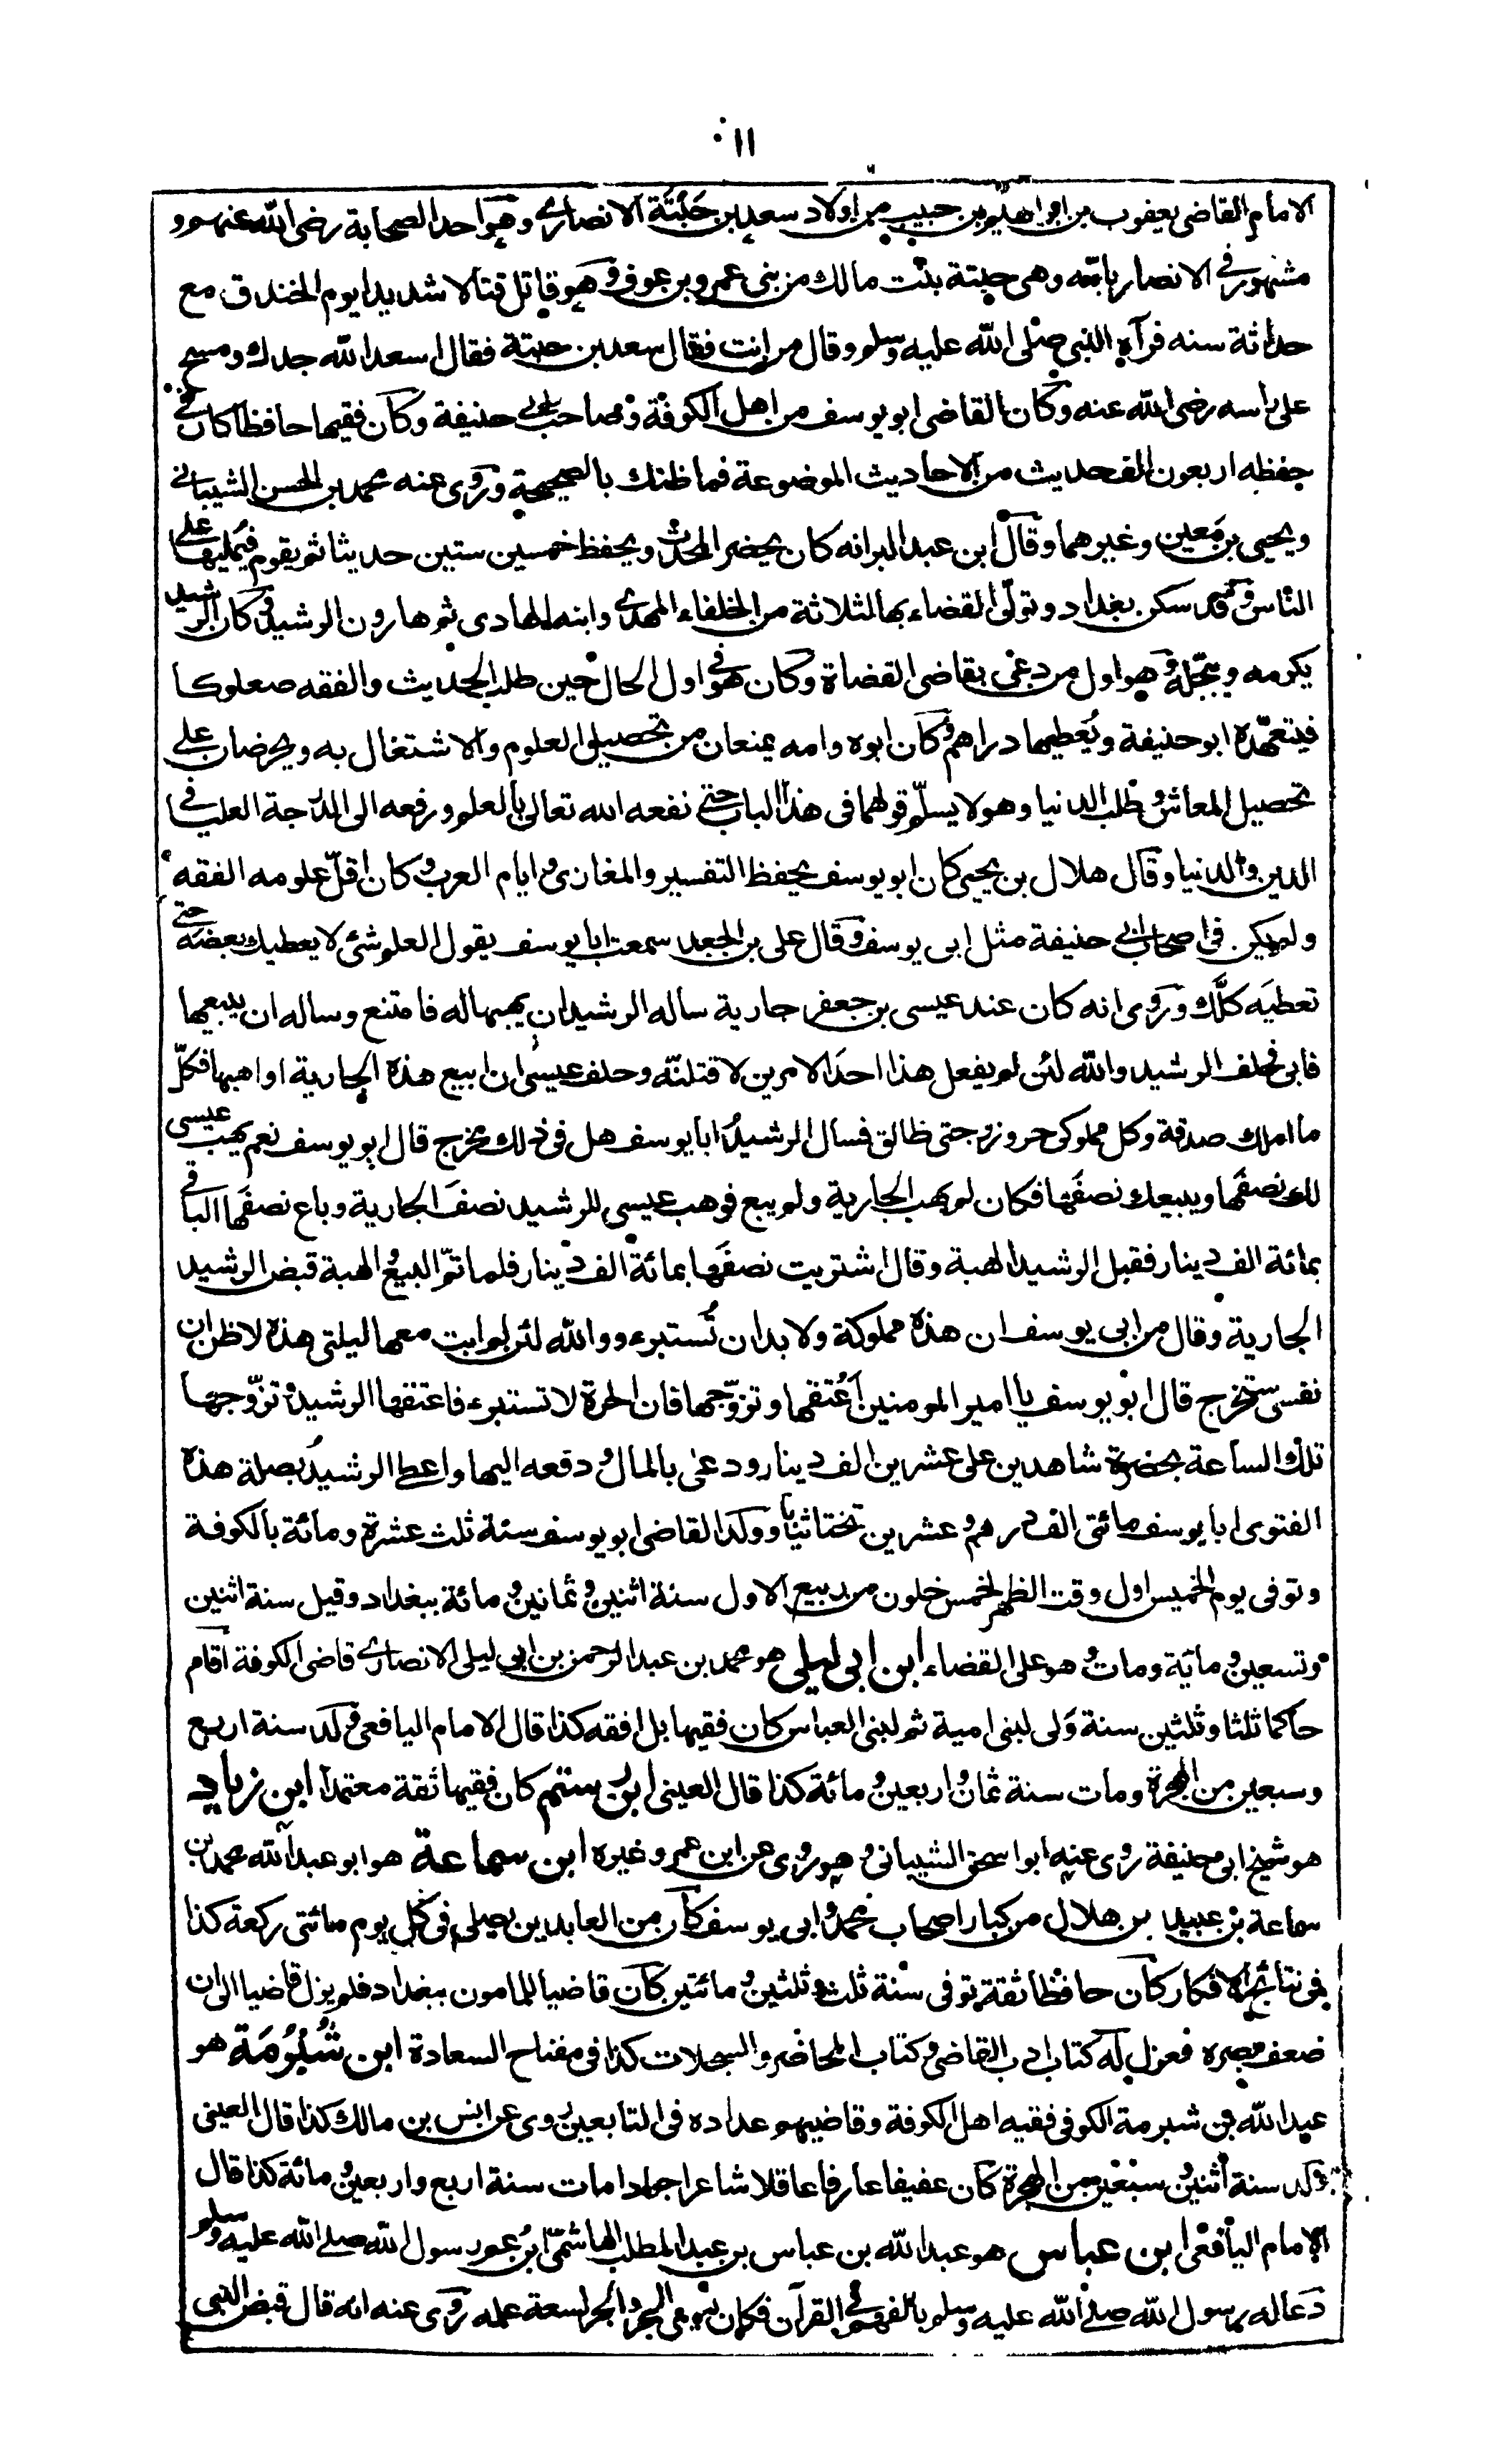 ١١٠
الامام القاضى يعقوب بن ابراهيم بن حبيب من اولاد سعد بن حَبْتَة الانصارى وهو احد الصحابة رضى الله عنهم و
مشهور فى الانصار بامّه وهى حبتة بنت مالك من بنى عمرو بن عوف وهو قاتل قتالا شديدا يوم الخندق مع
حداثة سنه فرآه النبى صلى الله عليه وسلم وقال من انت فقال سعد بن حبتة فقال اسعد الله جدك ومسح
على راسه رضى الله عنه وكان القاضى ابو يوسف من اهل الكوفة وصاحب ابى حنيفة وكان فقيها حافظا كان فى
حفظه اربعون الف حديث من الاحاديث الموضوعة فما ظنك بالصحيحة وروى عنه محمد بن الحسن الشيبانى
ويحيى بن مَعين وغيرهما وقال ابن عبد البر انه كان يحضر المحدث ويحفظ خمسين ستين حديثا ثم يقوم فيُمليها على
الناس وقد سكن بغداد وتولّى القضاء بها لثلاثة من الخلفاء المهدى وابنه الهادى ثم هارون الرشيد وكان الرشيد
يكرمه ويبجّله وهو اول من دعى بقاضى القضاة وكان هو فى اول الحال حين طلب الحديث والفقه صعلوكا
فيتعهّده ابو حنيفة ويُعطيها دراهم وكان ابوه وامه يمنعان من تحصيل العلوم والاشتغال به ويحرضان على
تحصيل المعاش وطلب الدنيا وهو لا يسلّم قولهما فى هذا الباب حتى نفعه الله تعالى بالعلم ورفعه الى الدرجة العليا فى
الدين والدنيا وقال هلال بن يحيى كان ابو يوسف يحفظ التفسير والمغازى وايام العرب وكان اقلّ علومه الفقه
ولم يكن فى اصحاب ابى حنيفة مثل ابى يوسف وقال على بن الجعد سمعت ابا يوسف يقول العلم شئ لا يعطيك بعضَه حتى
تعطيَه كلَّك وروى انه كان عند عيسى بن جعفر جارية ساله الرشيد ان يهبها له فامتنع وساله ان يبيعها
فابى فحلف الرشيد والله لئن لم يفعل هذا احدَ الامرين لاقتلنّه وحلف عيسى ان ابيع هذه الجارية او اهبها فكلّ
ما املك صدقة وكل مملوكى حر وزوجتى طالق فسال الرشيدُ ابا يوسف هل فى ذلك مخرج قال ابو يوسف نعم يهب عيسى
لك نصفَها ويبيعك نصفَها فكان لم يهب الجارية ولم يبع فوهب عيسى للرشيد نصفَ الجارية وباع نصفَها الباقى
بمائة الف دينار فقبل الرشيد الهبة وقال اشتريت نصفَها بمائة الف دينار فلما تمّ البيع والهبة قبض الرشيد
الجارية وقال من ابى يوسف ان هذه مملوكة ولا بد ان تُستبرء ووالله لئن لم ابت معها ليلتى هذه لاظن ان
نفسى ستخرج قال ابو يوسف يا امير المومنين اَعْتقها وتزوّجها فان الحرة لا تستبرء فاعتقها الرشيد وتزوّجها
تلك الساعة بحضرة شاهدين على عشرين الف دينار ودعى بالمال ودفعه اليها واعطى الرشيدُ بصلة هذه
الفتوى ابا يوسف مائتى الف درهم وعشرين تختا ثيابا وولد القاضى ابو يوسف سنة ثلث عشرة ومائة بالكوفة
وتوفى يوم الخميس اول وقت الظهر لخمس خلون من ربيع الاول سنة اثنين وثمانين ومائة ببغداد وقيل سنة اثنين
وتسعين ومائة ومات وهو على القضاء ابن ابى ليلى هو محمد بن عبد الرحمن بن ابى ليلى الانصارى قاضى الكوفة اقام
حاكما ثلثا وثلثين سنة وَلى لبنى امية ثم لبنى العباس كان فقيها بل افقه كذا قال الامام اليافعى ولد سنة اربع
وسبعين من الهجرة ومات سنة ثمان واربعين ومائة كذا قال العينى ابن رستم كان فقيها ثقة معتمدا ابن زياد
هو شيخ ابى حنيفة روى عنه ابو اسحق الشيبانى وهو روى عن ابن عمر وغيره ابن سماعة هو ابو عبد الله محمد بن
سماعة بن عبيد بن هلال من كبار اصحاب محمد وابى يوسف كان من العابدين يصلى فى كل يوم مائتى ركعة كذا
فى نتائج الافكار كان حافظا ثقة توفى سنة ثلث وثلثين ومائتين كان قاضيا للمامون ببغداد فلم يزل قاضيا الى ان
ضعف بصره فعزل له كتاب ادب القاضى وكتاب المحاضر والسجلات كذا فى مفتاح السعادة ابن شُبْرُمَة هو
عبد الله بن شبرمة الكوفى فقيه اهل الكوفة وقاضيهم عداده فى التابعين روى عن انس بن مالك كذا قال العينى
ولد سنة اثنين وسبعين من الهجرة كان عفيفا عارفا عاقلا شاعرا جوادا مات سنة اربع واربعين ومائة كذا قال
الامام اليافعى ابن عباس هو عبد الله بن عباس بن عبد المطلب الهاشمى ابن عم رسول الله صلى الله عليه وسلم
دعا له رسول الله صلى الله عليه وسلم بالفهم فى القرآن فكان يسمى البحر والحبر لسعة علمه روى عنه انه قال قبض النبى